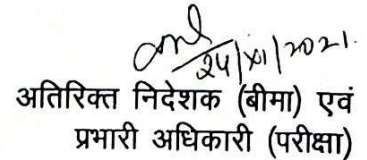 24/XI/2021.
अतिरिक्त निदेशक (बीमा) एवं
प्रभारी अधिकारी (परीक्षा)